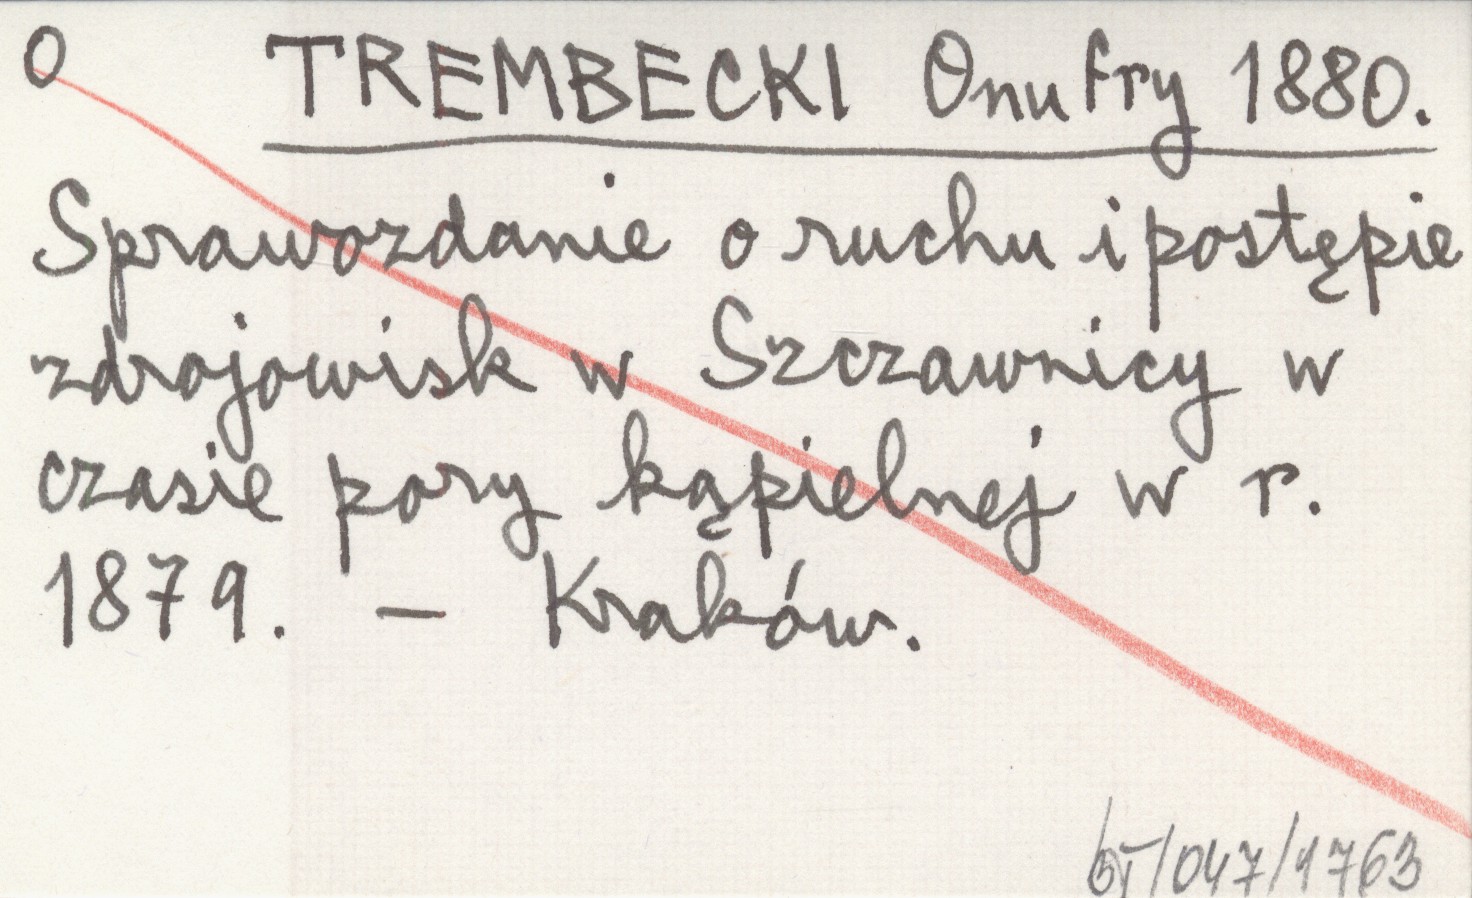 O TREMBECKI Onufry 1880.
Sprawozdanie o ruchu i postępie
zdrojowisk w Szczawnicy w
czasie pory kąpielnej w r.
1879. — Kraków.
/047/1763